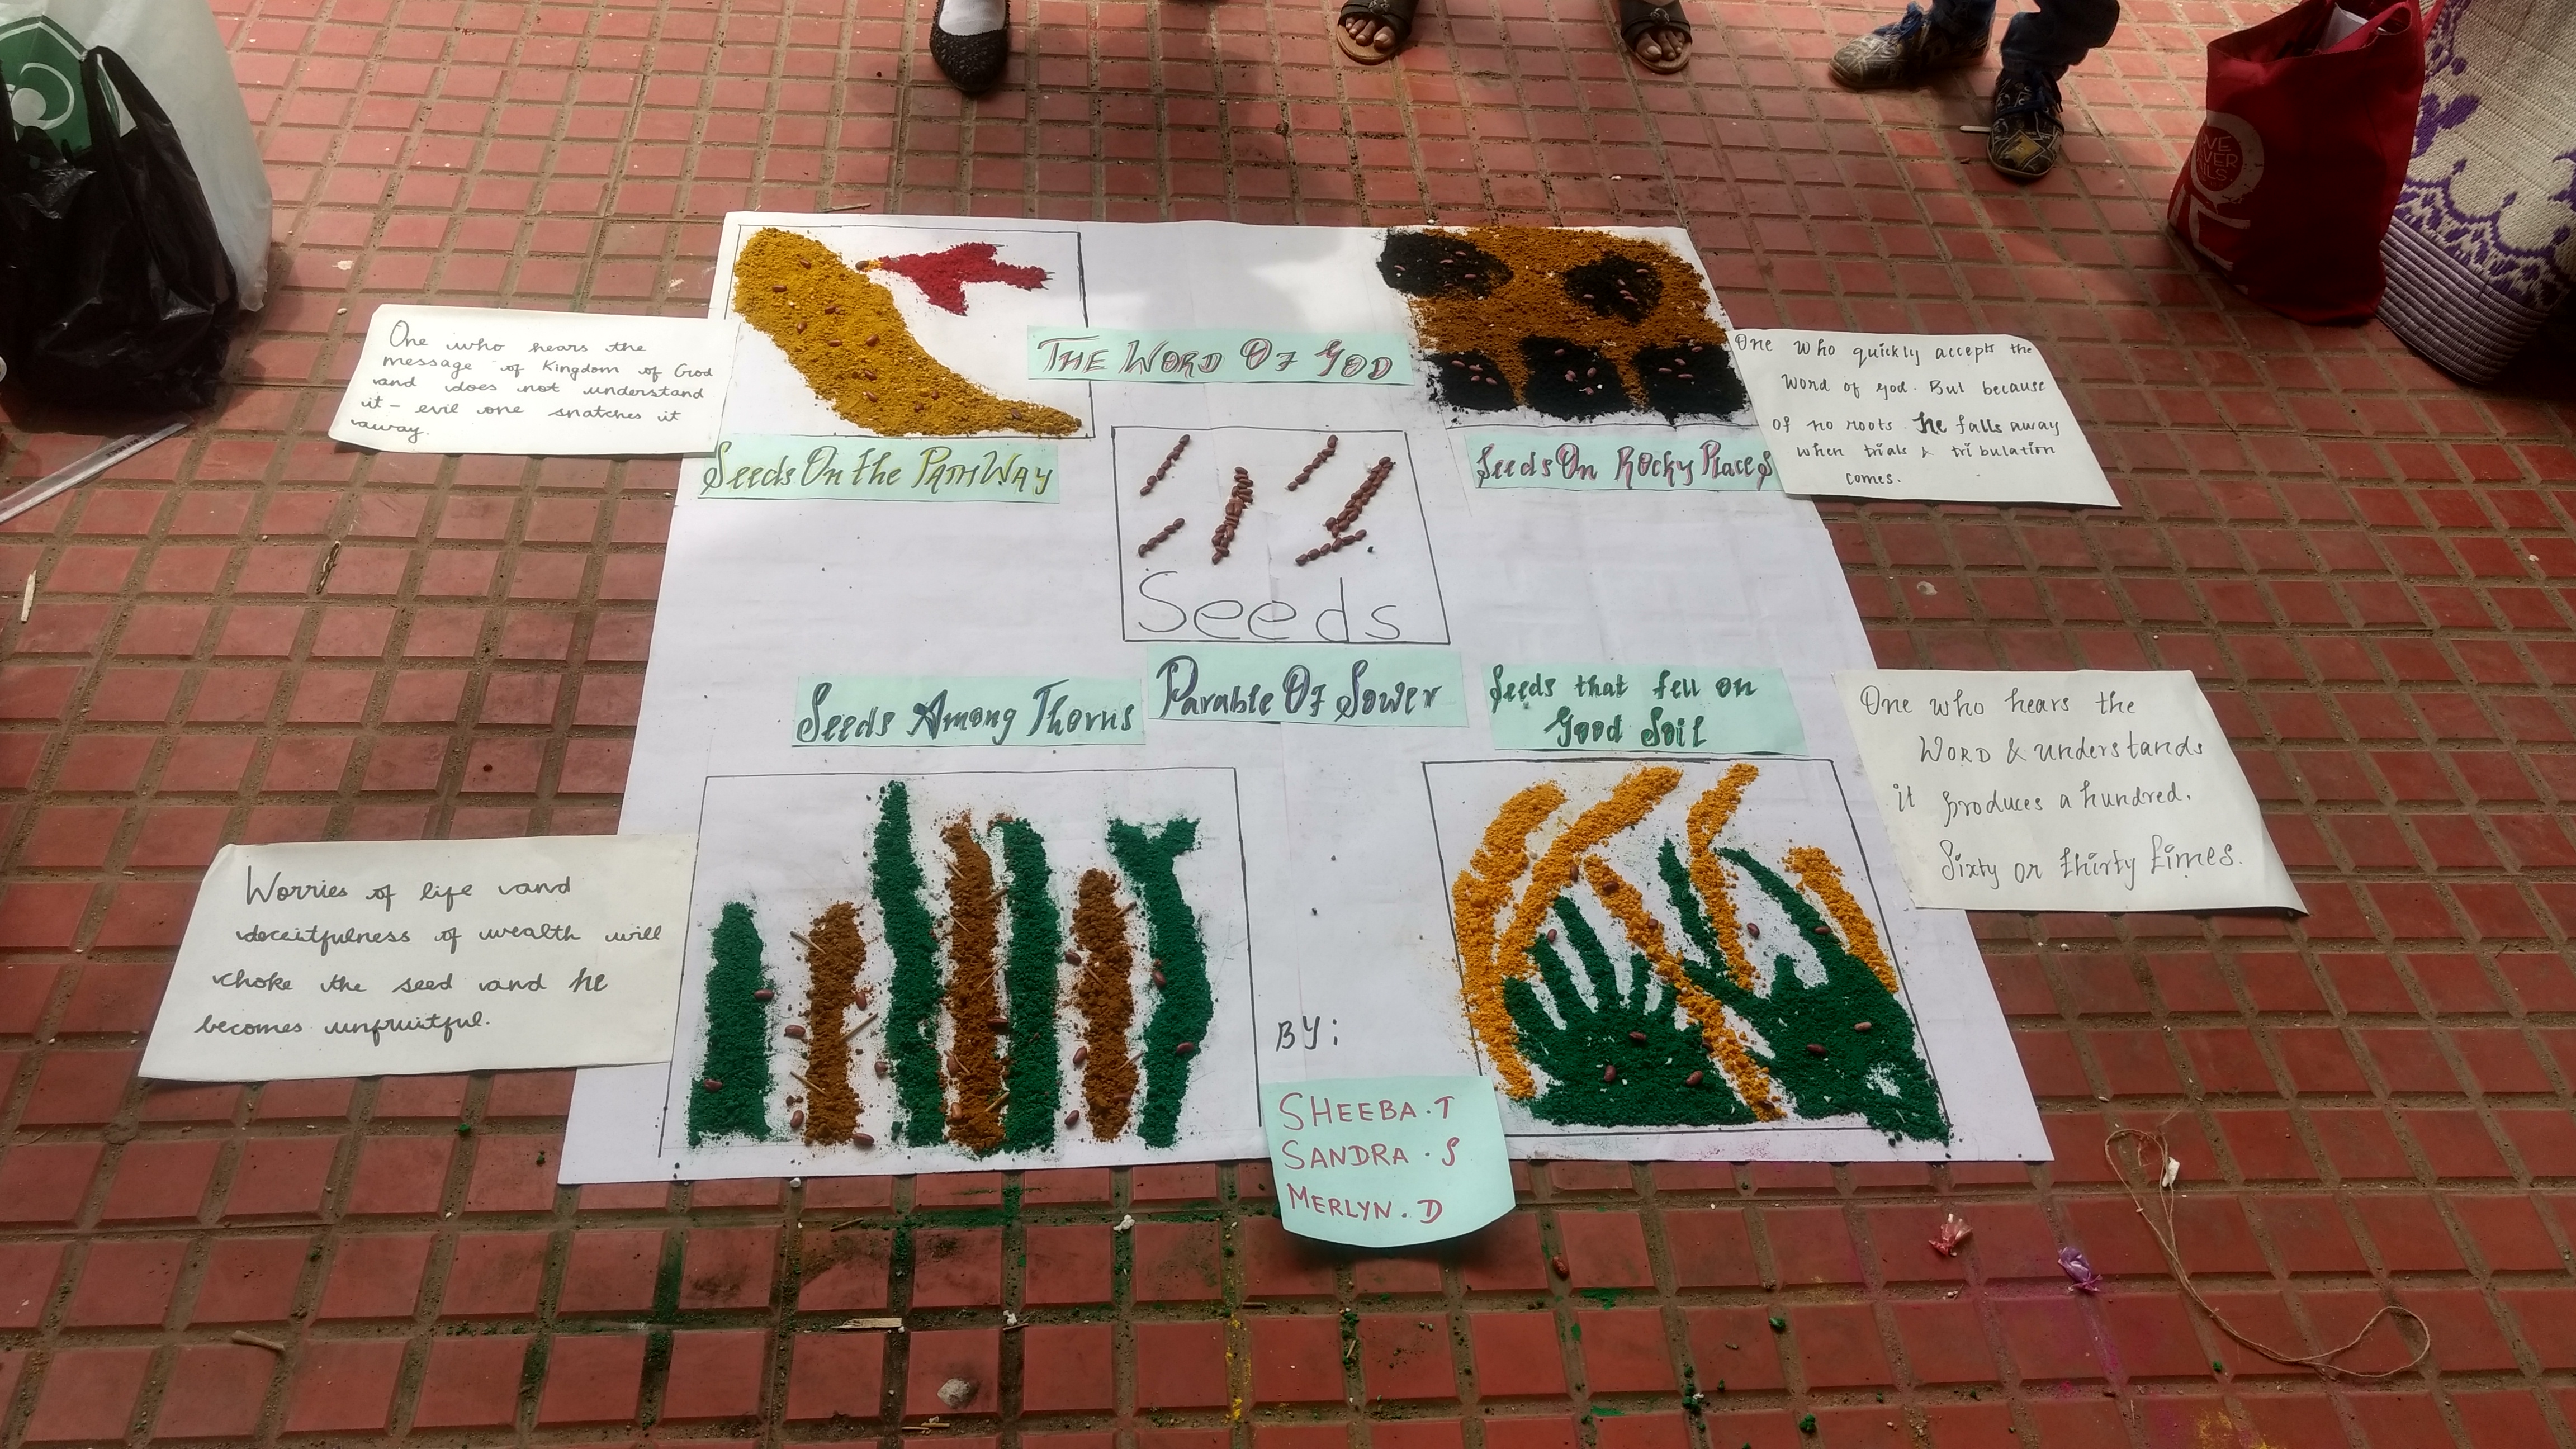 One who hears the
message of Kingdom of God
and does not understand
it - evil one snatches it
away.
THE WORD OF GOD
One who quickly accepts the
Word of god. But because
of no roots he falls away
when trials & tribulation
comes.
Seeds On the PATHWAY
Seeds On Rocky Places
Seeds
Seeds Among Thorns
Parable Of Sower
Seeds that fell on
Good Soil
One who hears the
WORD & understands
it produces a hundred.
Sixty or thirty times.
Worries of life and
deceitfulness of wealth will
choke the seed and he
becomes unfruitful.
BY:
SHEEBA.T
SANDRA.S
MERLYN.D